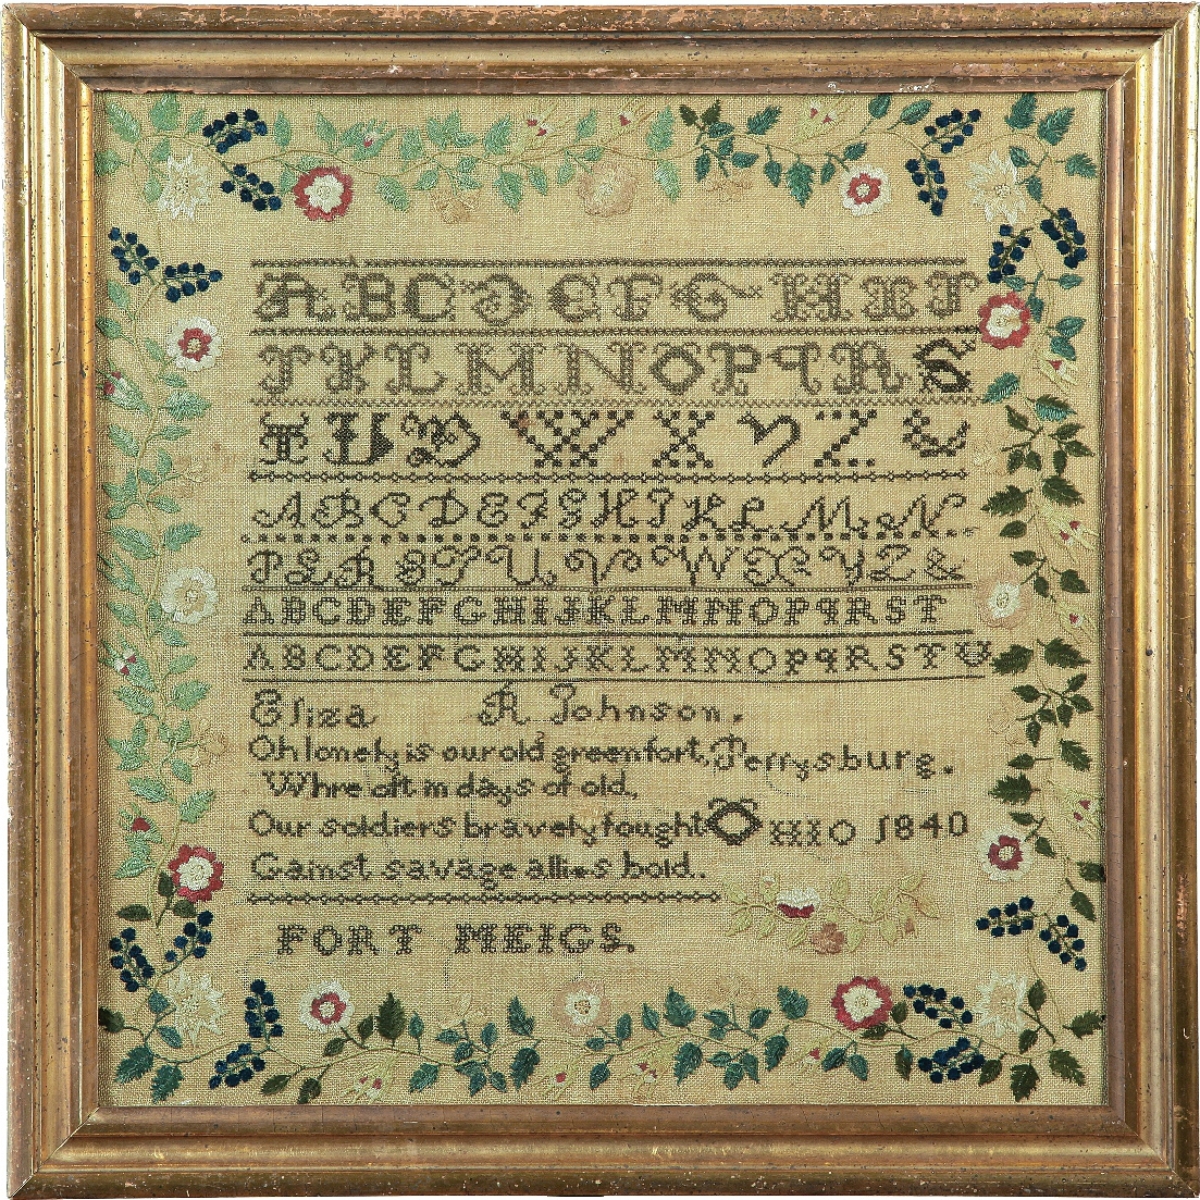 A B C D E F G H I J
J K L M N O P q R S
T U V W X Y Z &
A B C D E F G H I K L M N
P Q R S T U V W X Y Z &
A B C D E F G H I J K L M N O P q R S T
A B C D E F G H I J K L M N O P q R S T U
Eliza R Johnson.
Oh lonely is our old green fort, Perrysburg.
Whre oft in days of old,
Our soldiers bravely fought OHIO 1840
Gainst savage allies bold..
FORT MEIGS.